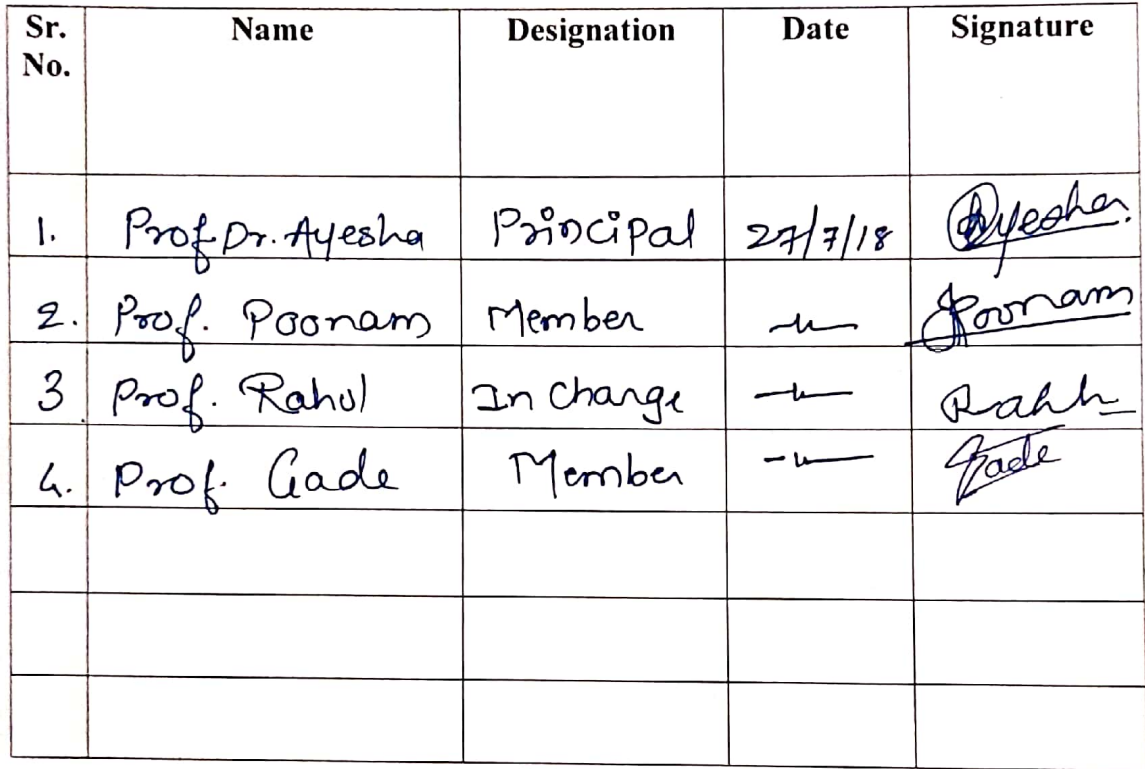 Sr. No. Name Designation Date Signature
1. Prof Dr. Ayesha Principal 27/7/18 Ayesha
2. Prof. Poonam Member —"— Poonam
3 Prof. Rahul In Charge —"— Rahul
4. Prof. Gade Member —"— Gade